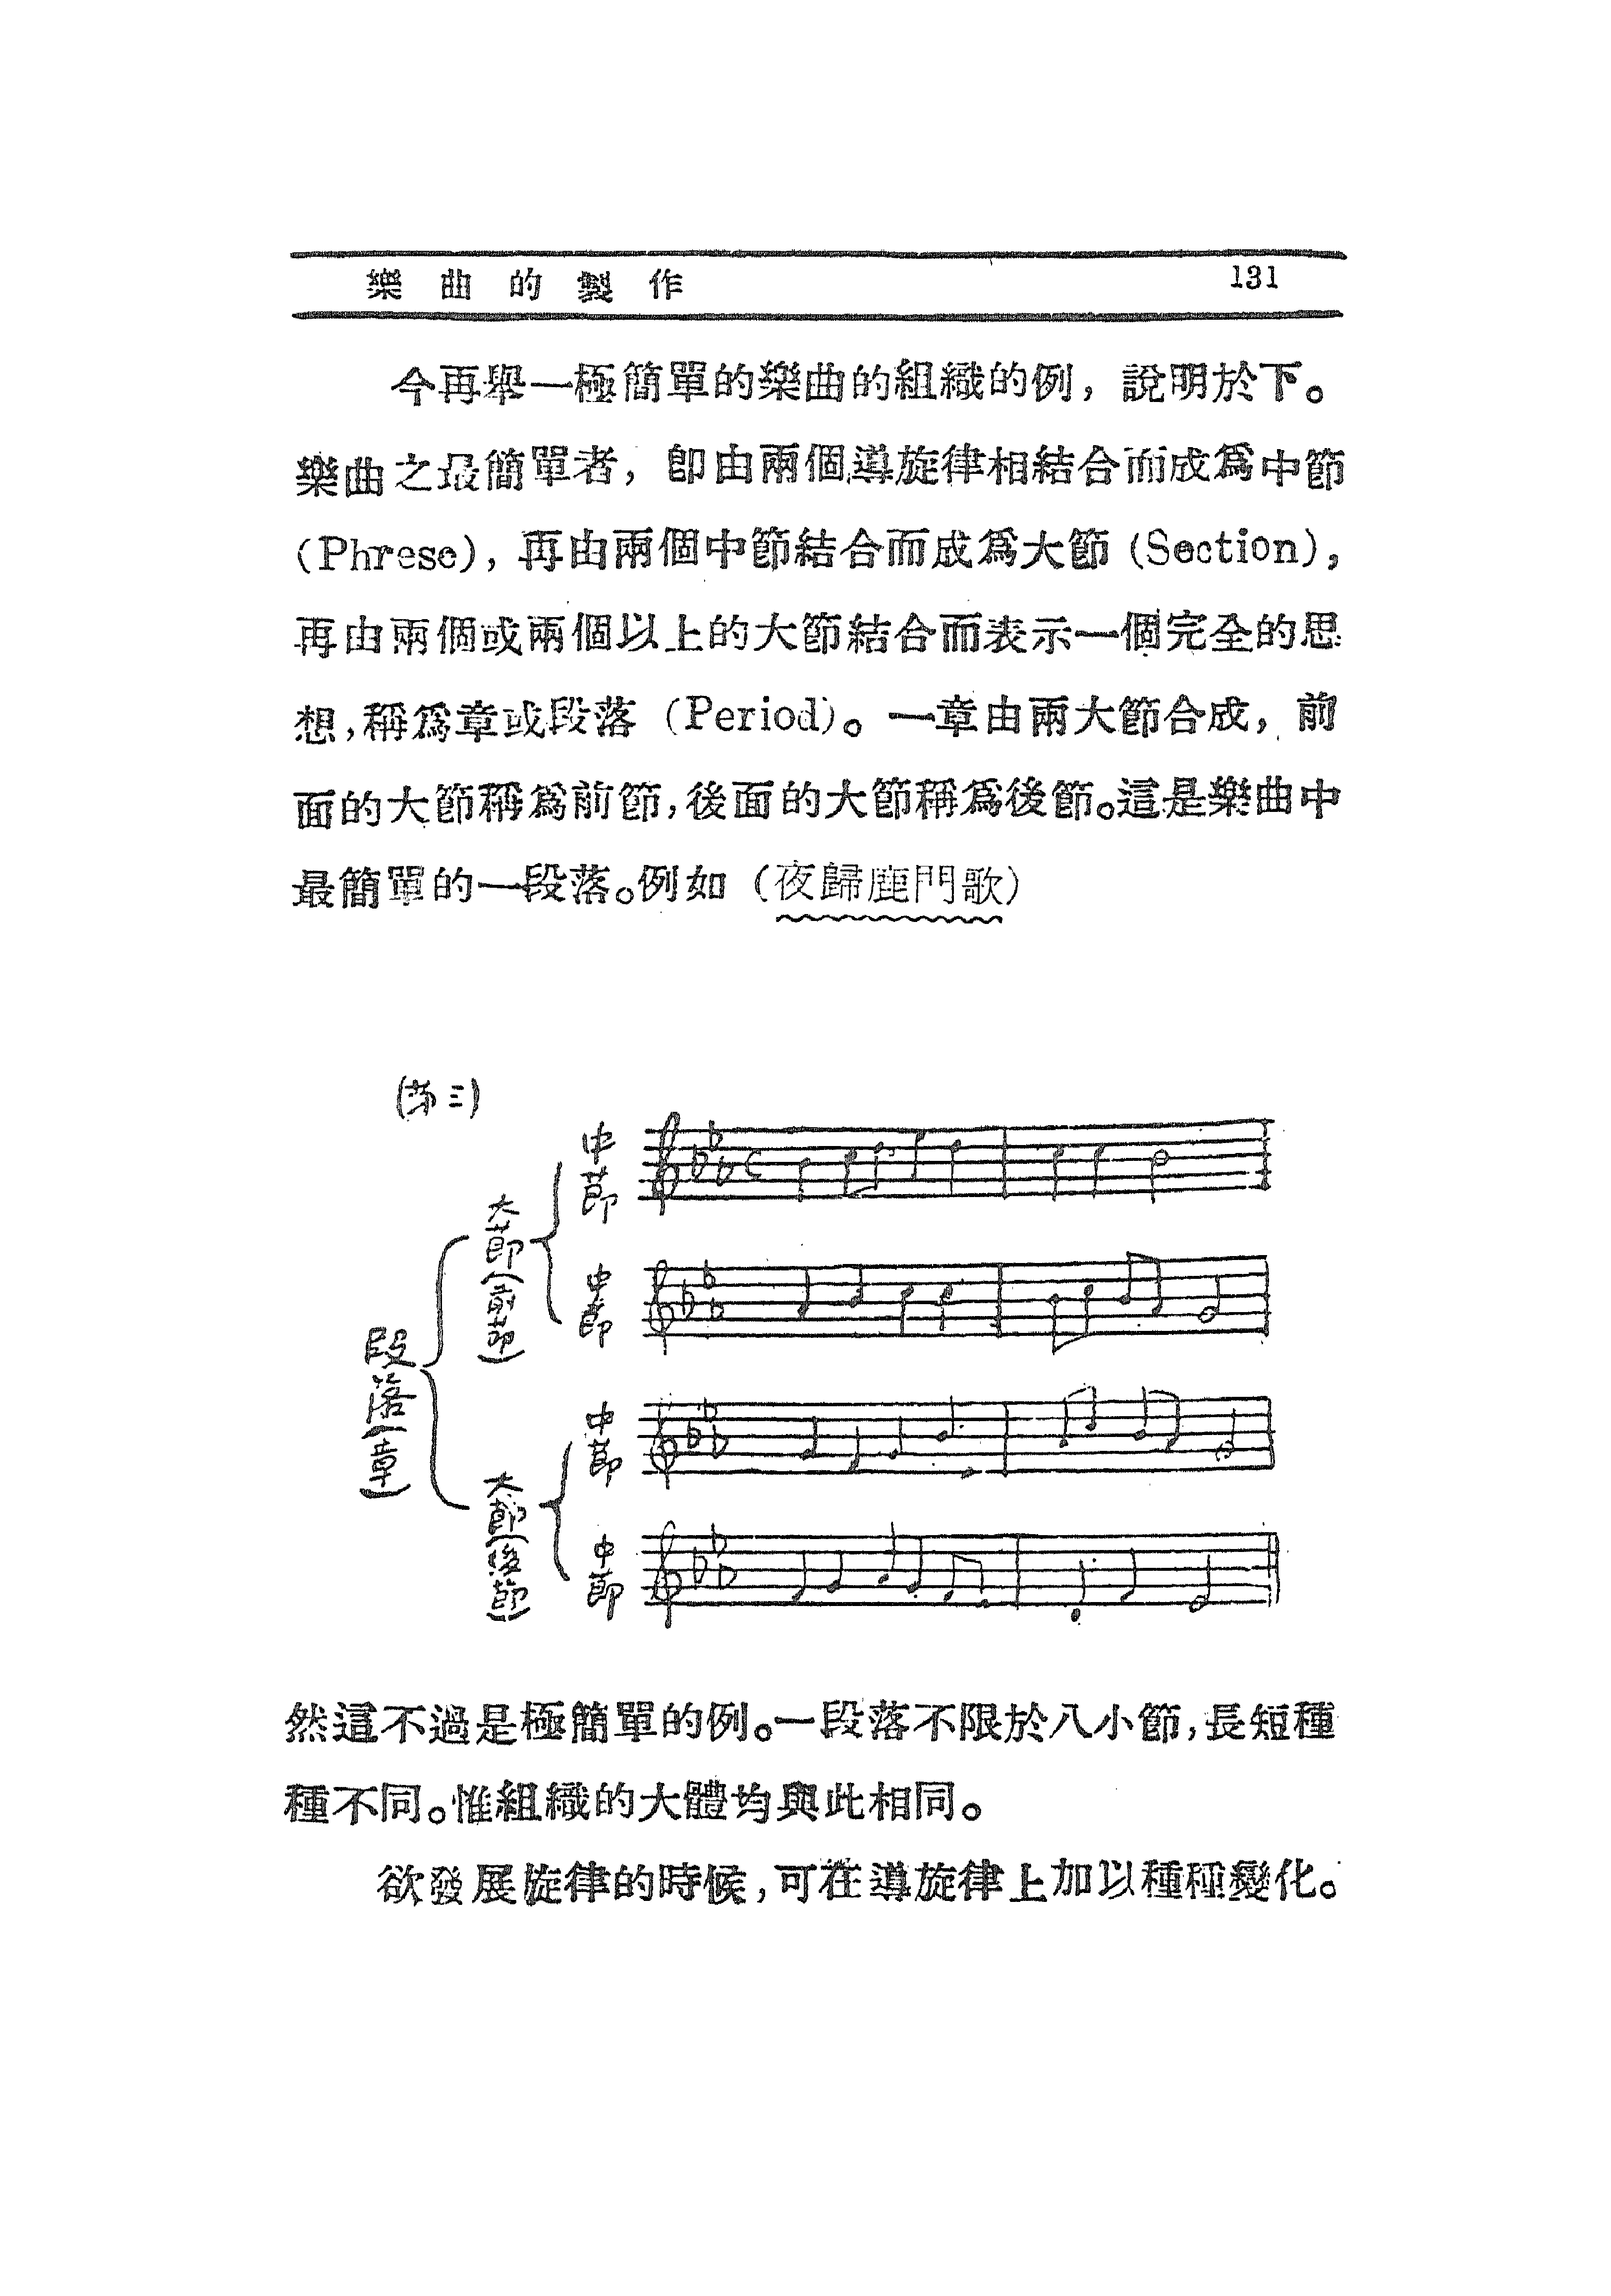 樂曲的製作 131
今再舉一極簡單的樂曲的組織的例，說明於下。
樂曲之最簡單者，卽由兩個導旋律相結合而成爲中節
(Phrese)，再由兩個中節結合而成爲大節(Section)，
再由兩個或兩個以上的大節結合而表示一個完全的思
想，稱爲章或段落(Period)。一章由兩大節合成，前
面的大節稱爲前節，後面的大節稱爲後節。這是樂曲中
最簡單的一段落。例如(夜歸鹿門歌)
(第三)
段落(章)
大節(前節)
中節
中節
大節(後節)
中節
中節
然這不過是極簡單的例。一段落不限於八小節，長短種
種不同。惟組織的大體均與此相同。
欲發展旋律的時候，可在導旋律上加以種種變化。